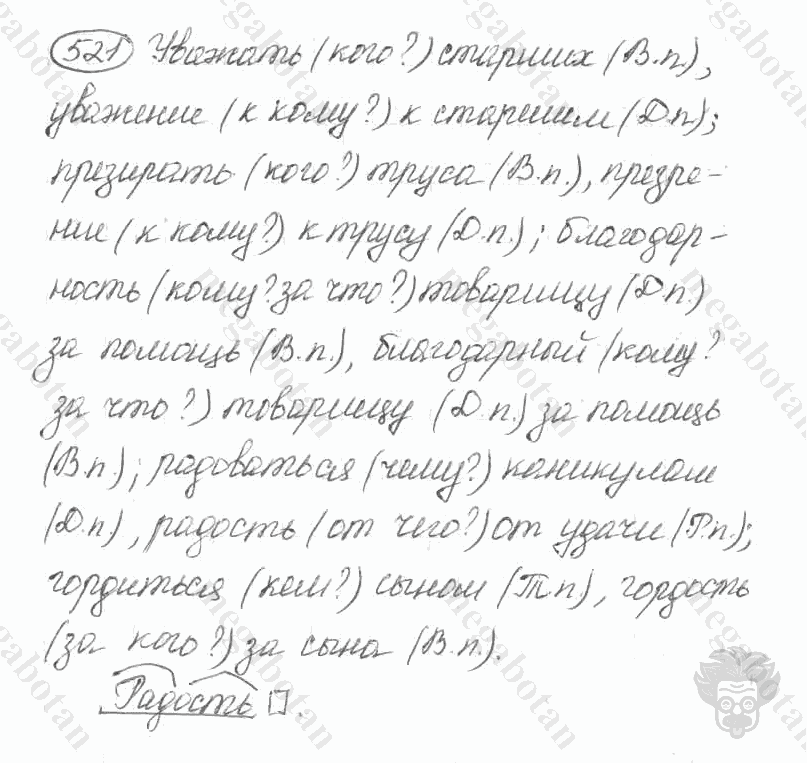 521 Уважать (кого?) старших (В.п.),
уважение (к кому?) к старшим (Д.п.);
презирать (кого?) труса (В.п.), презре-
ние (к кому?) к трусу (Д.п.); благодар-
ность (кому? за что?) товарищу (Д.п.)
за помощь (В.п.), благодарный (кому?
за что?) товарищу (Д.п.) за помощь
(В.п.); радоваться (чему?) каникулам
(Д.п.), радость (от чего?) от удачи (Р.п.);
гордиться (кем?) сыном (Т.п.), гордость
(за кого?) за сына (В.п.).
Радость □.
megabotan